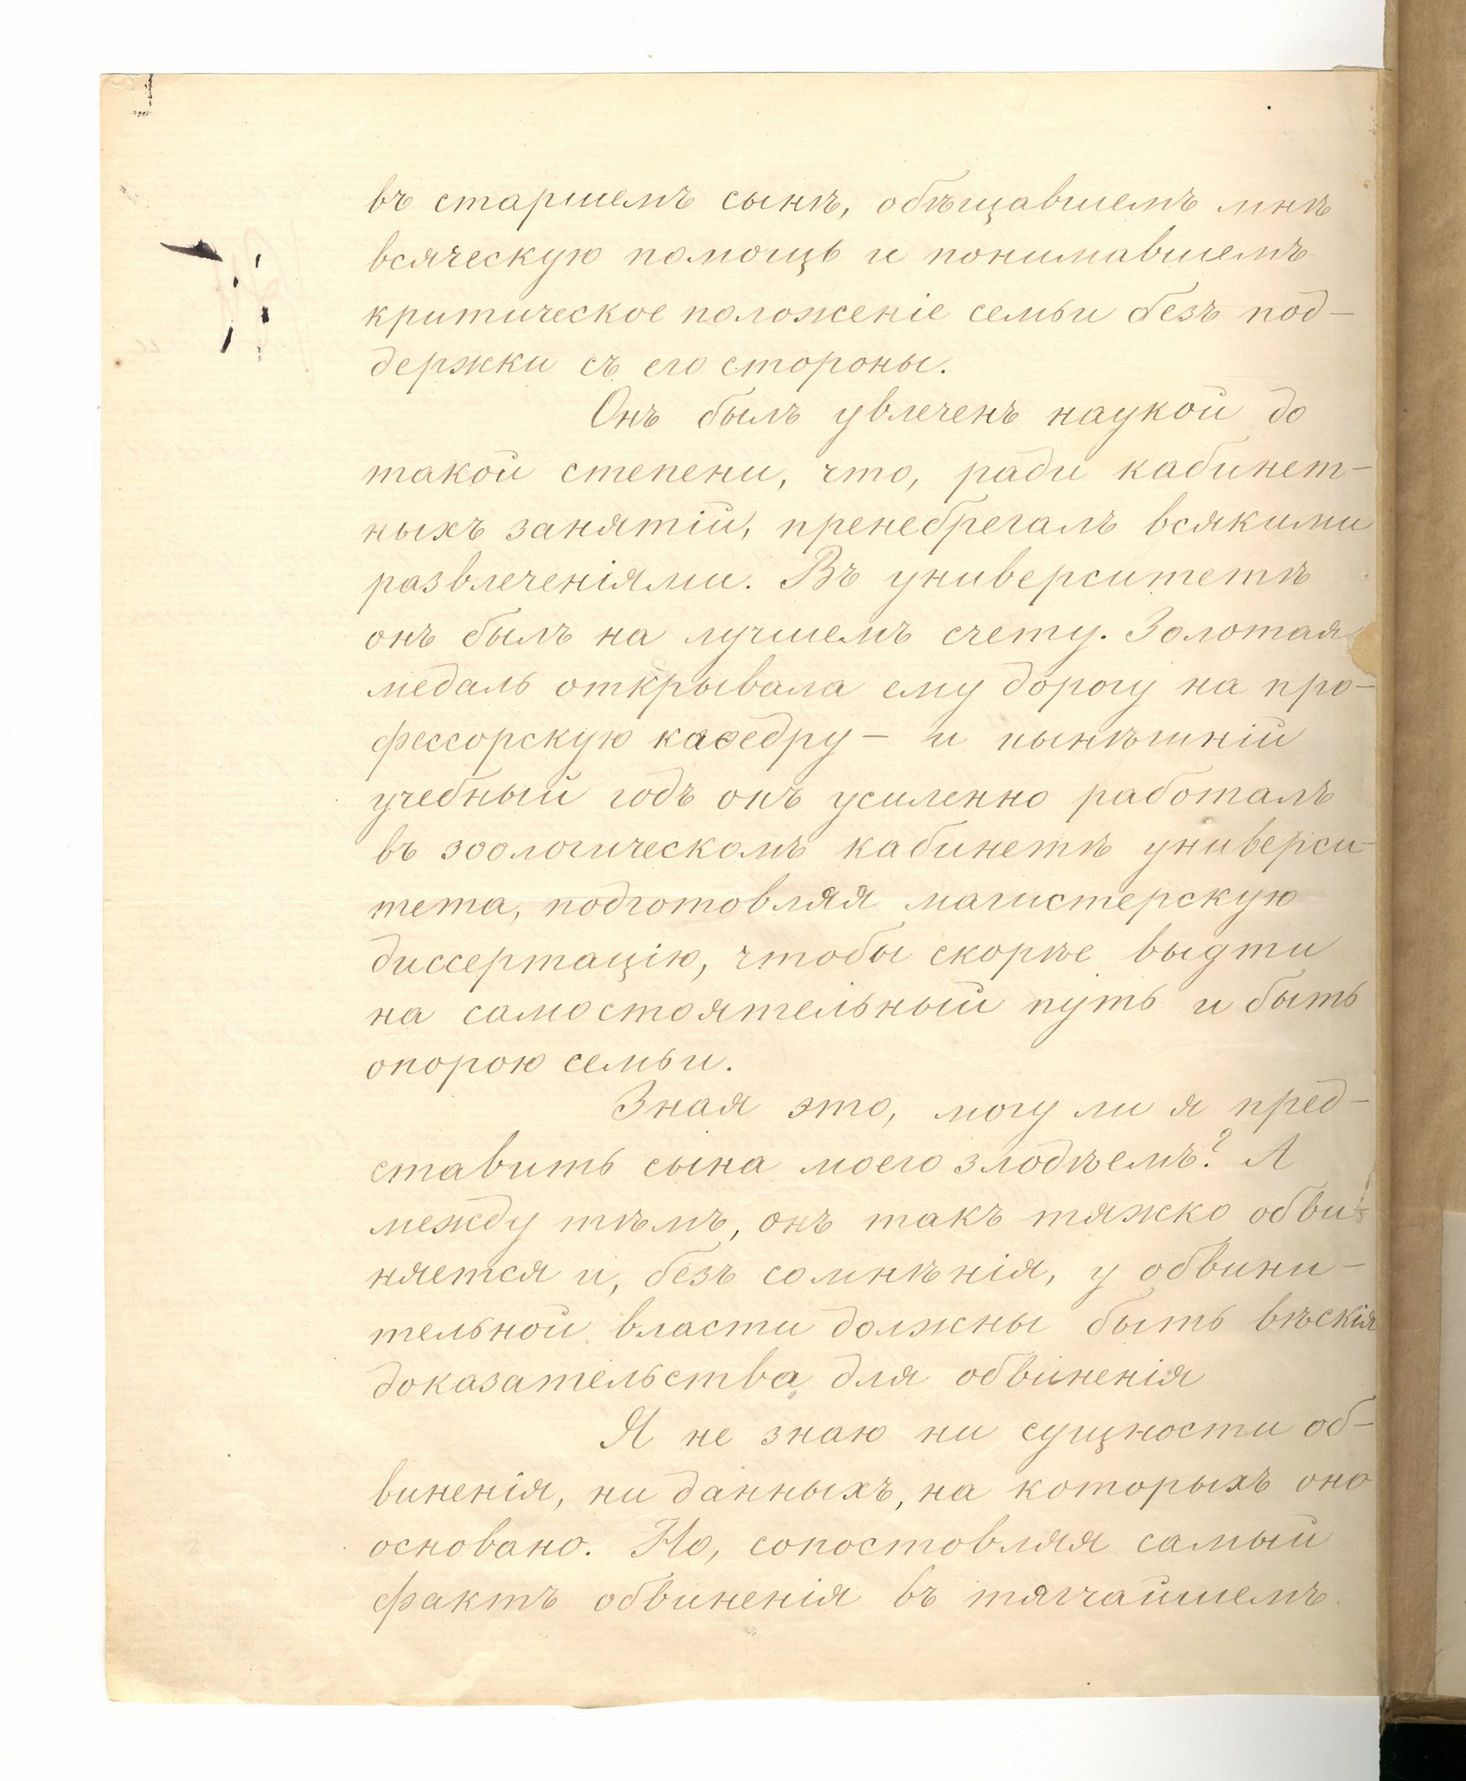 въ старшемъ сынѣ, обѣщавшемъ мнѣ
всяческую помощь и понимавшемъ
критическое положеніе семьи безъ под-
держки съ его стороны.
Онъ былъ увлеченъ наукой до
такой степени, что, ради кабинет-
ныхъ занятій, пренебрегалъ всякими
развлеченіями. Въ университетѣ
онъ былъ на лучшемъ счету. Золотая
медаль открывала ему дорогу на про-
фессорскую каѳедру – и нынѣшній
учебный годъ онъ усиленно работалъ
въ зоологическомъ кабинетѣ универси-
тета, подготовляя магистерскую
диссертацію, чтобы скорѣе выдти
на самостоятельный путь и быть
опорою семьи.
Зная это, могу ли я пред-
ставить сына моего злодѣемъ? А
между тѣмъ, онъ такъ тяжко обви-
няется и, безъ сомнѣнія, у обвини-
тельной власти должны быть вѣскія
доказательства для обвиненія
Я не знаю ни сущности об-
виненія, ни данныхъ, на которыхъ оно
основано. Но, сопостовляя самый
фактъ обвиненія въ тягчайшемъ